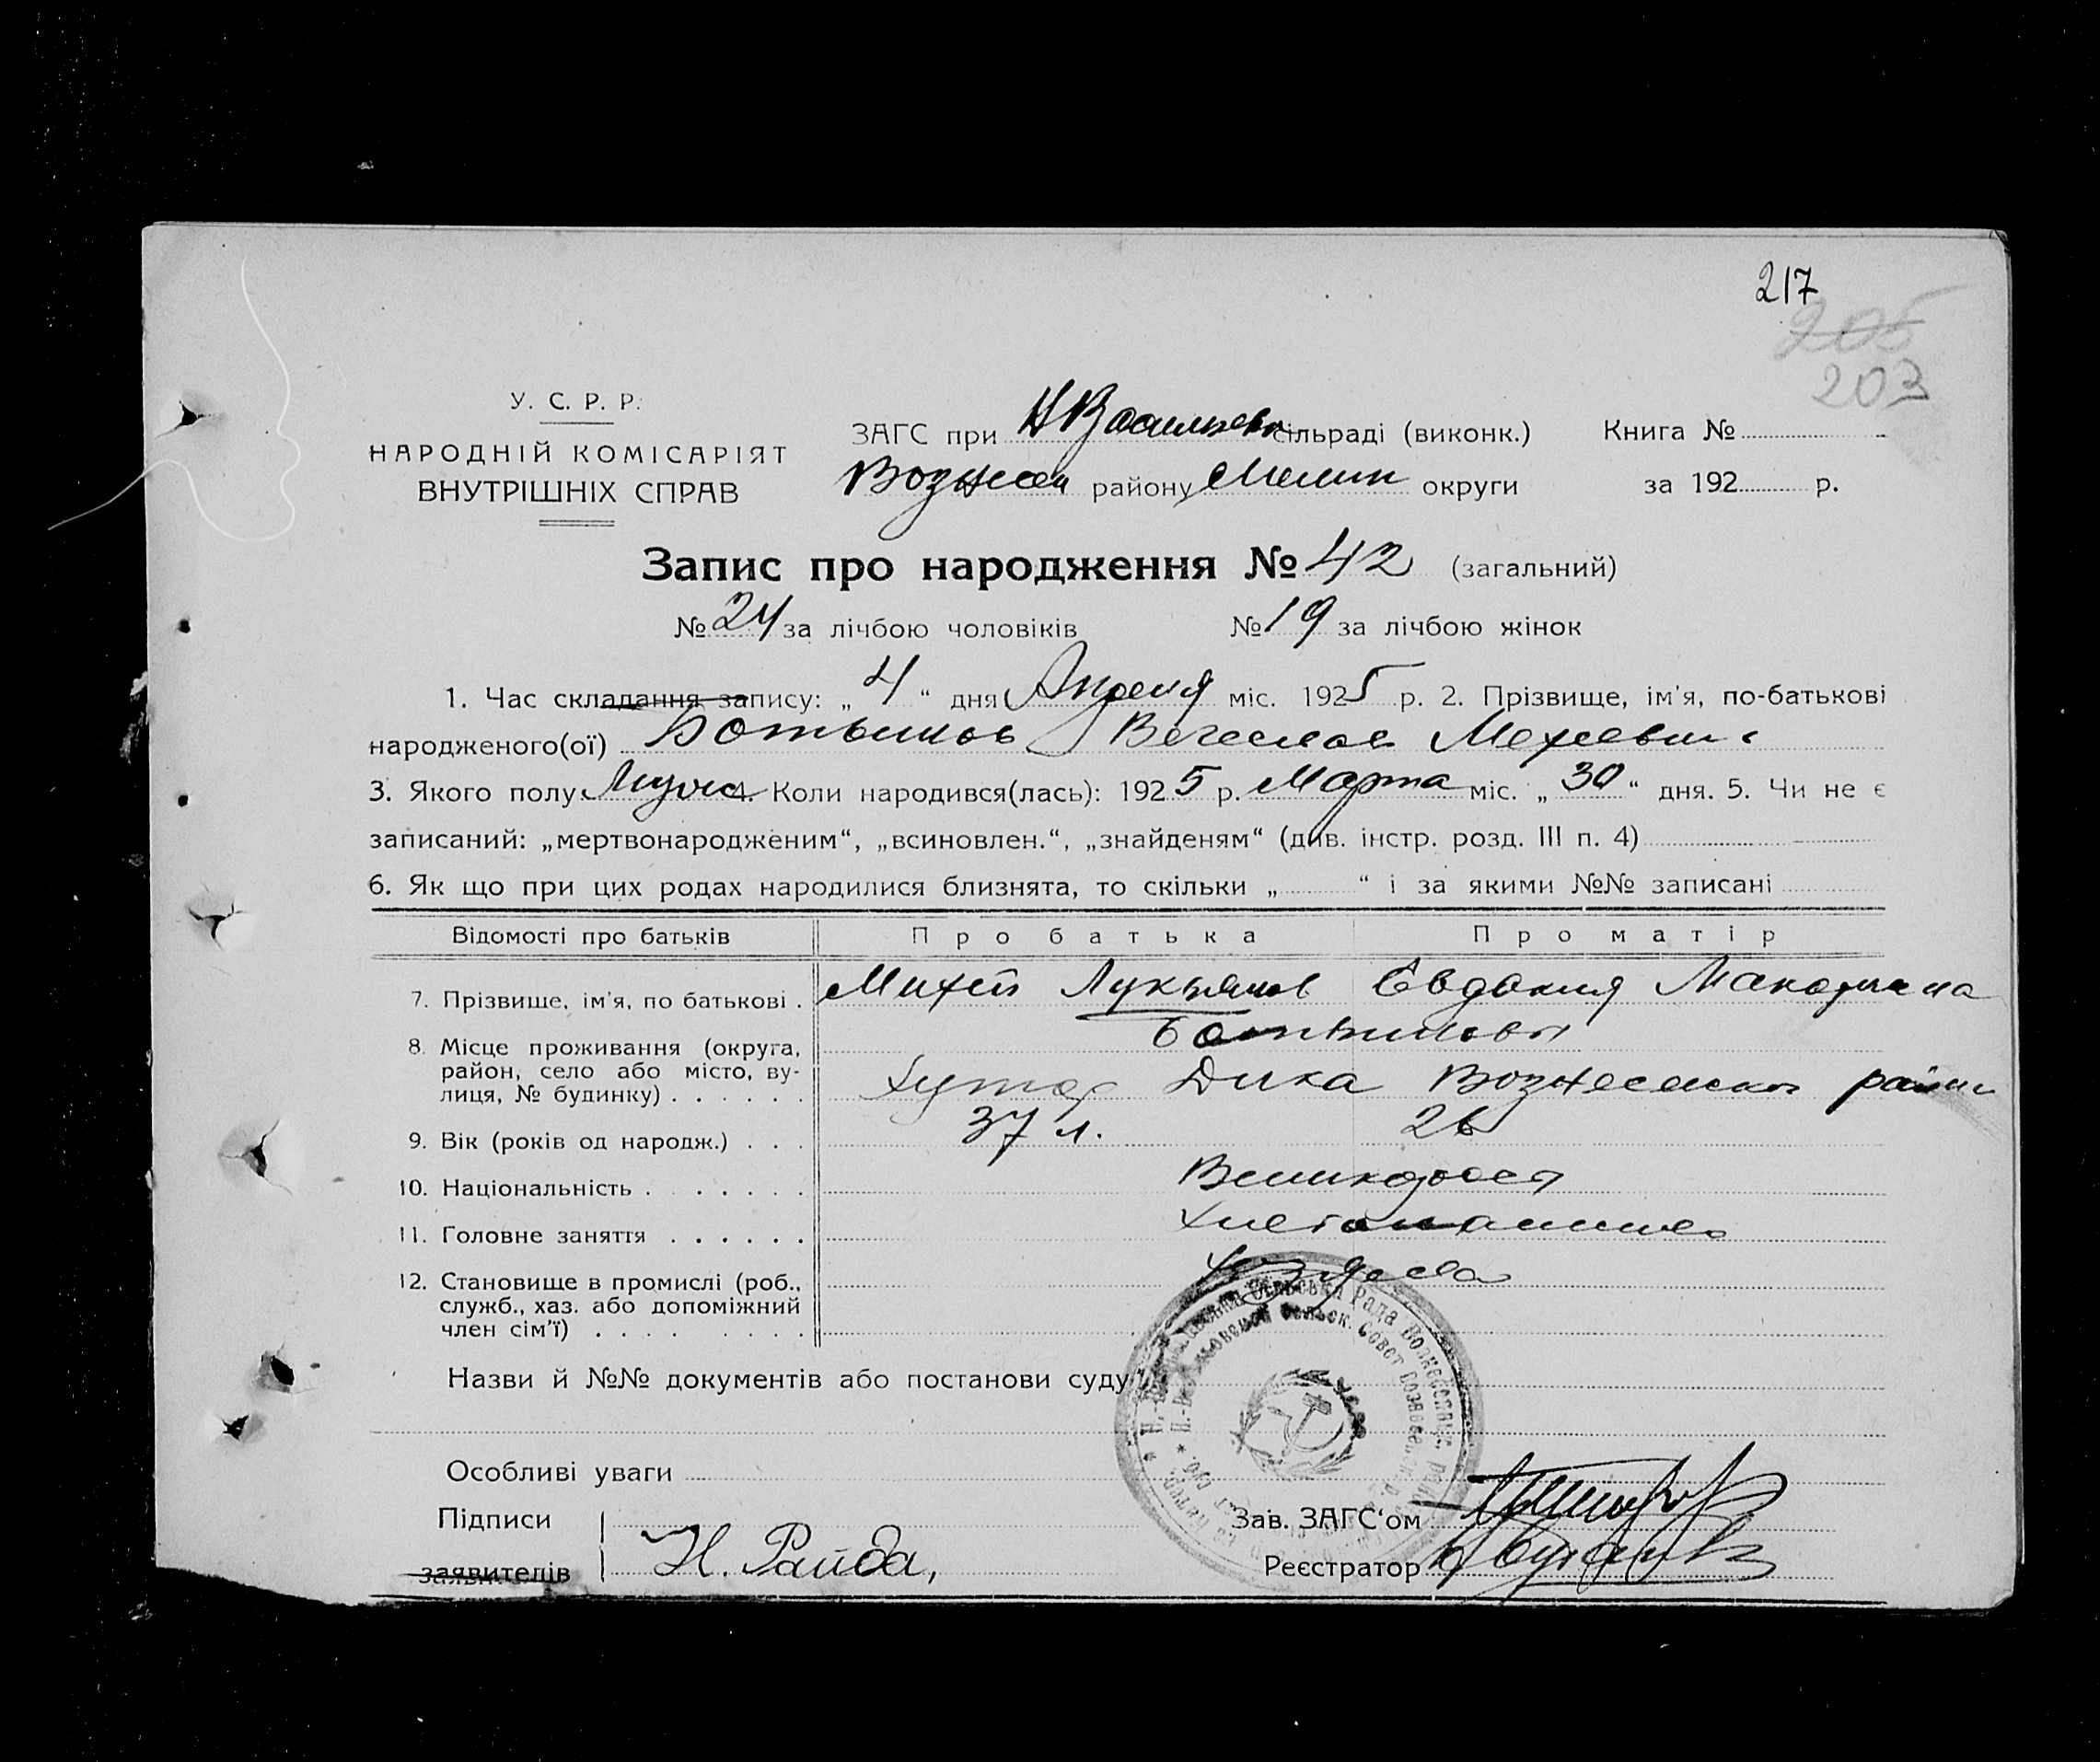 217
205
203
У. С. Р. Р.
НАРОДНІЙ КОМІСАРІЯТ
ВНУТРІШНІХ СПРАВ
ЗАГС при Н Васильевк сільраді (виконк.) Книга №
Вознесен району Мелит округи за 192 р.
Запис про народження № 42 (загальний)
№ 24 за лічбою чоловіків № 19 за лічбою жінок
1. Час складання запису: „ 4 “ дня Апреля міс. 1925 р. 2. Прізвище, ім'я, по-батькові
народженого(ої) Вячеслав Михеевич
3. Якого полу Мужс 4. Коли народився(лась): 1925 р. Марта міс. „ 30 “ дня. 5. Чи не є
записаний: „мертвонародженим“, „всиновлен.“, „знайденям“ (див. інстр. розд. III п. 4)
6. Як що при цих родах народилися близнята, то скільки „ “ і за якими №№ записані
Відомості про батьків Про батька Про матір
7. Прізвище, ім'я, по батькові . Михей Лукьянов Евдокия Макаровна
8. Місце проживання (округа,
район, село або місто, ву-
лиця, № будинку) . . . . . . хутор Дика Вознесенског района
9. Вік (років од народж.) . . . 37 л. 26
10. Національність . . . . . . . Великоросся
11. Головне заняття . . . . . . хлебопашество
12. Становище в промислі (роб.,
служб., хаз. або допоміжний
член сім'ї) . . . . . . . . хозяева
Назви й №№ документів або постанови суду
Особливі уваги
Підписи
заявителів Н. Райда,
Зав. ЗАГС‘ом
Реєстратор
Сельська Рада
Сельск. Совет